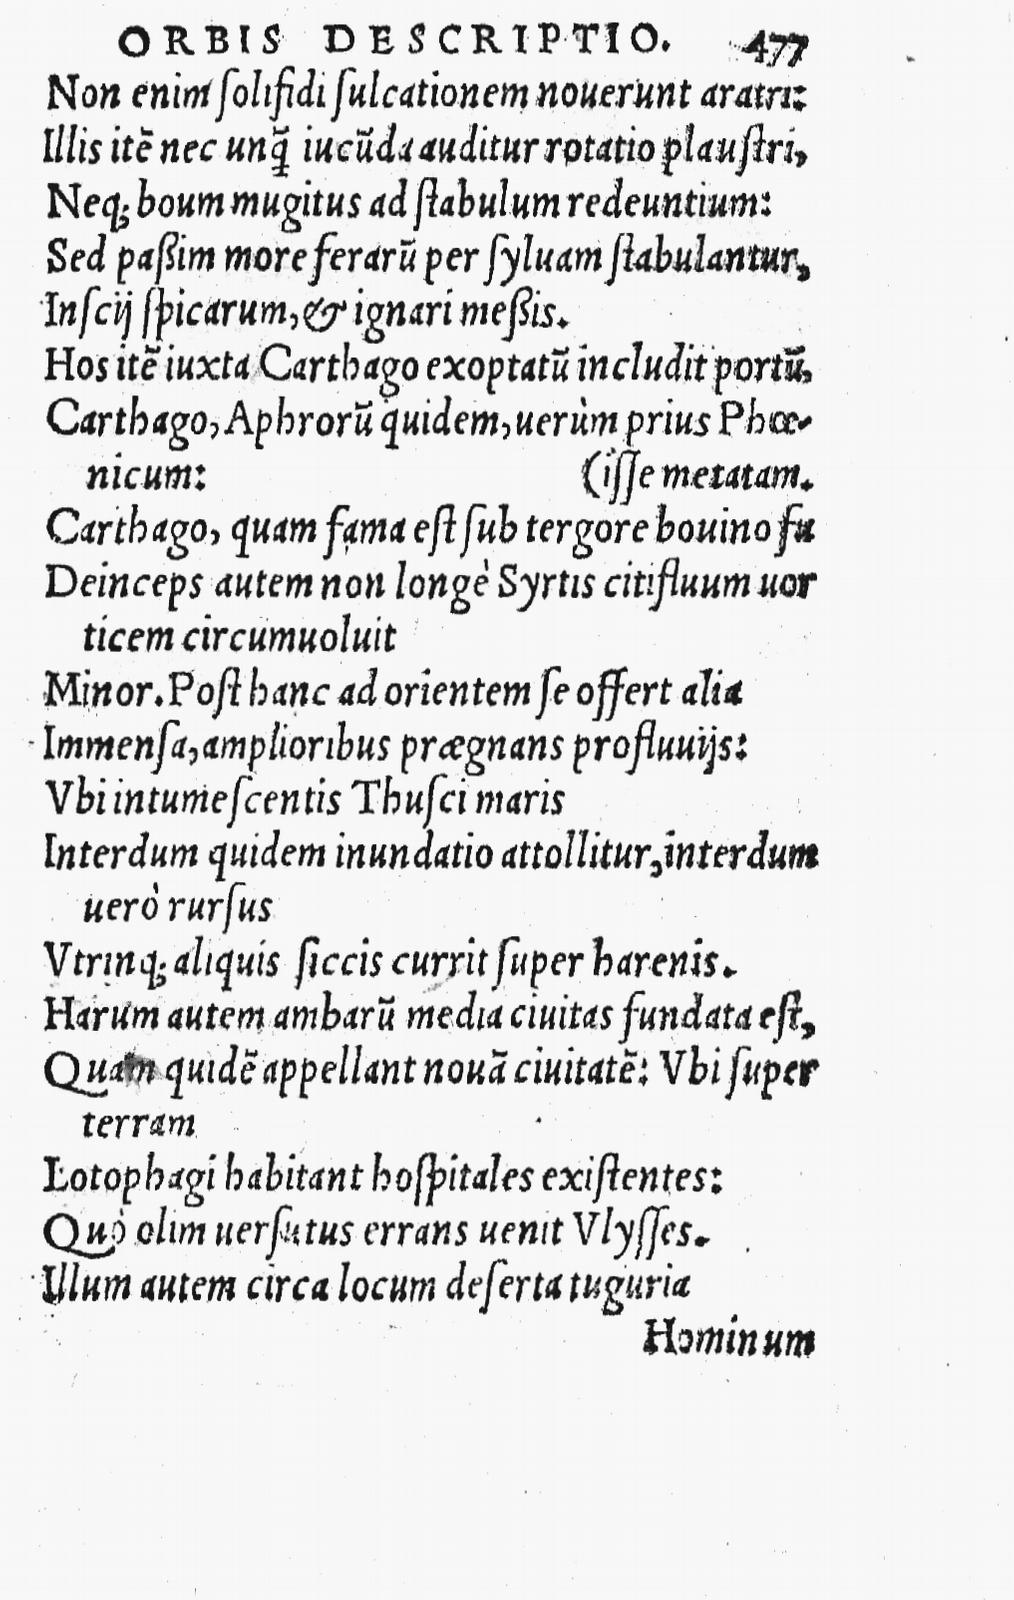 ORBIS DESCRIPTIO. 477
Non enim ſolifidi ſulcationem nouerunt aratri:
Illis itē nec unq̃ iucūda auditur rotatio plauſtri,
Neq; boum mugitus ad ſtabulum redeuntium:
Sed paßim more ferarū per ſyluam ſtabulantur,
Inſcij ſpicarum, & ignari meßis.
Hos itē iuxta Carthago exoptatū includit portū,
Carthago, Aphrorū quidem, uerùm prius Phœ-
nicum: (iſſe metatam.
Carthago, quam fama eſt ſub tergore bouino fu
Deinceps autem non longè Syrtis citifluum uor
ticem circumuoluit
Minor. Poſt hanc ad orientem ſe offert alia
Immenſa, amplioribus prægnans profluuijs:
Vbi intumeſcentis Thuſci maris
Interdum quidem inundatio attollitur, interdum
uerò rurſus
Vtrinq; aliquis ſiccis currit ſuper harenis.
Harum autem ambarū media ciuitas fundata eſt,
Quam quidē appellant nouā ciuitatē: Vbi ſuper
terram
Lotophagi habitant hoſpitales exiſtentes:
Quò olim uerſutus errans uenit Vlyſſes.
Illum autem circa locum deſerta tuguria
Hominum